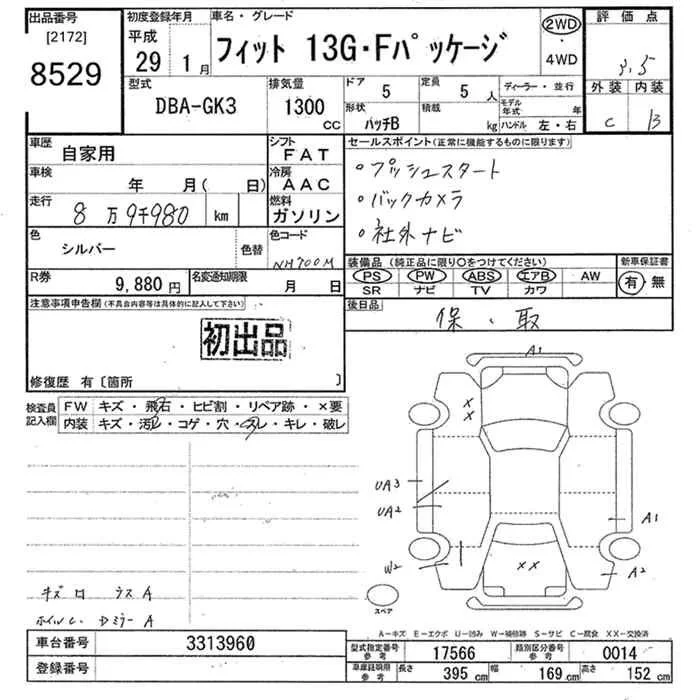 出品番号
[2172]
8529
初度登録年月
平成
29年 1月
車名・グレード
フィット 13G・Fパッケージ
2WD
・
4WD
評価点
3.5
外装 内装
C B
型式
DBA-GK3
排気量
1300
CC
ドア
5
定員
5 人
形状
ハッチB
積載
kg
ディーラー・並行
モデル年式 年
ハンドル 左・右
車歴
自家用
シフト
FAT
車検
年 月( 日)
冷房
AAC
走行
8万9千980 km
燃料
ガソリン
色
シルバー
色替
色コード
NH700M
R券
9,880円
名変通知期限
月 日
セールスポイント(正常に機能するものに限ります)
・プッシュスタート
・バックカメラ
・社外ナビ
装備品(純正品に限り○をつけてください)
PS PW ABS エアB AW
SR ナビ TV カワ
新車保証書
有・無
後日品
保・取
注意事項申告欄(不具合内容等は具体的に記入して下さい)
初出品
修復歴 有〔箇所 〕
検査員記入欄
FW キズ・飛石・ヒビ割・リペア跡・×要
内装 キズ・汚レ・コゲ・穴・スレ・キレ・破レ
A1
××
UA3
UA2
A1
W2
××
A2
スペア
ホイルC. Dミラー A
A-キズ E-エクボ U-凹み W-補修跡 S-サビ C-腐食 XX-交換済
車台番号
3313960
登録番号
型式指定番号
参考
17566
類別区分番号
参考
0014
車庫証明用
参考
長さ 395cm 幅 169cm 高さ 152cm